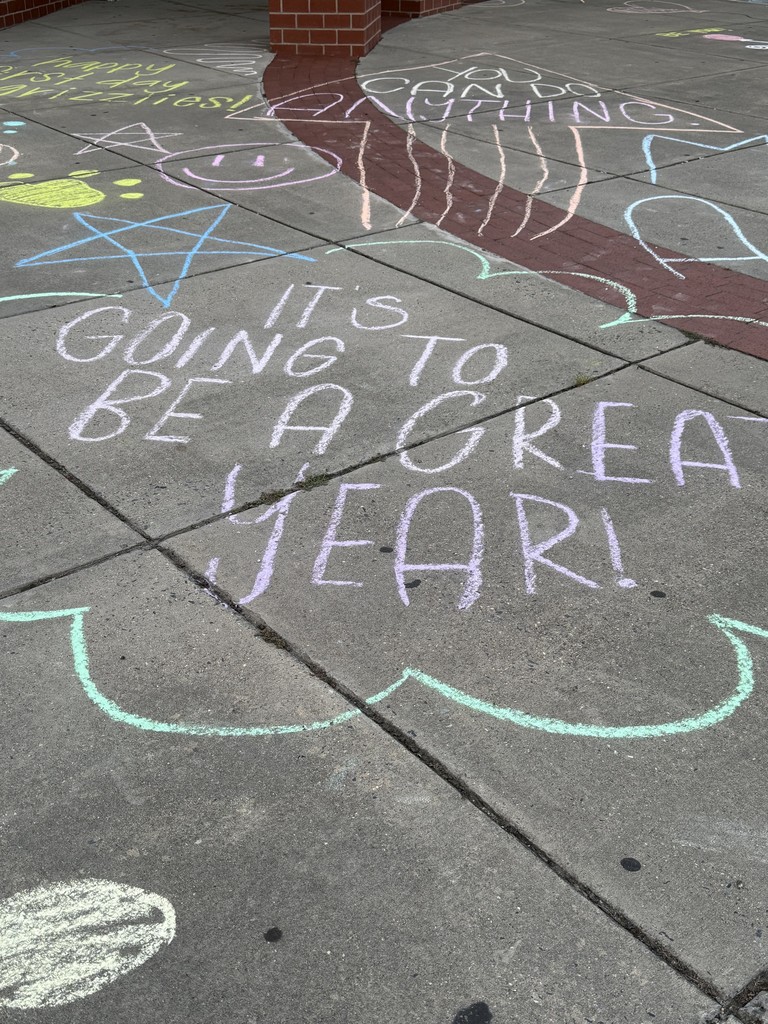 happy
first day
Grizzlies!
YOU
CAN DO
ANYTHING.
IT'S
GOING TO
BE A GREAT
YEAR!